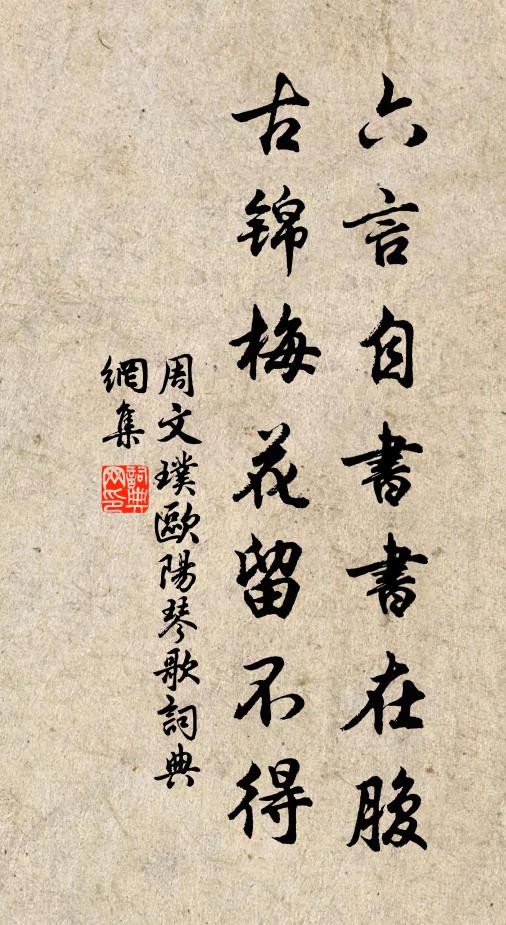 六言自書書在腹
古锦梅花留不得
周文璞歐陽琴歌詞典
網集
詞典
网印